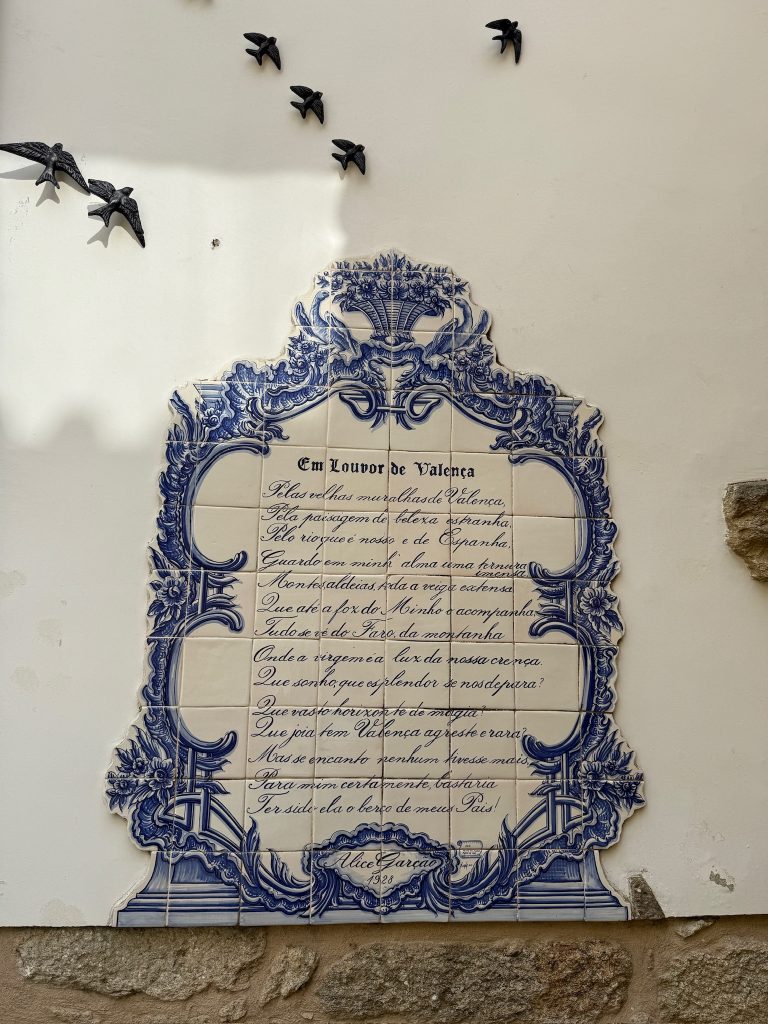 Em Louvor de Valença
Pelas velhas muralhas de Valença,
Pela paisagem de beleza estranha,
Pelo rio que é nosso e de Espanha,
Guardo em minh' alma uma ternura
imensa
Montes, aldeias, toda a veiga extensa
Que até a foz do Minho o acompanha,
Tudo se vê do Faro, da montanha
Onde a virgem é a luz da nossa crença.
Que sonho, que esplendor se nos depara?
Que vasto horizonte de magia?
Que joia tem Valença agreste e rara?
Mas se encanto nenhum tivesse mais,
Para mim certamente, bastaria
Ter sido ela o berço de meus Pais!
Alice Garção
1928